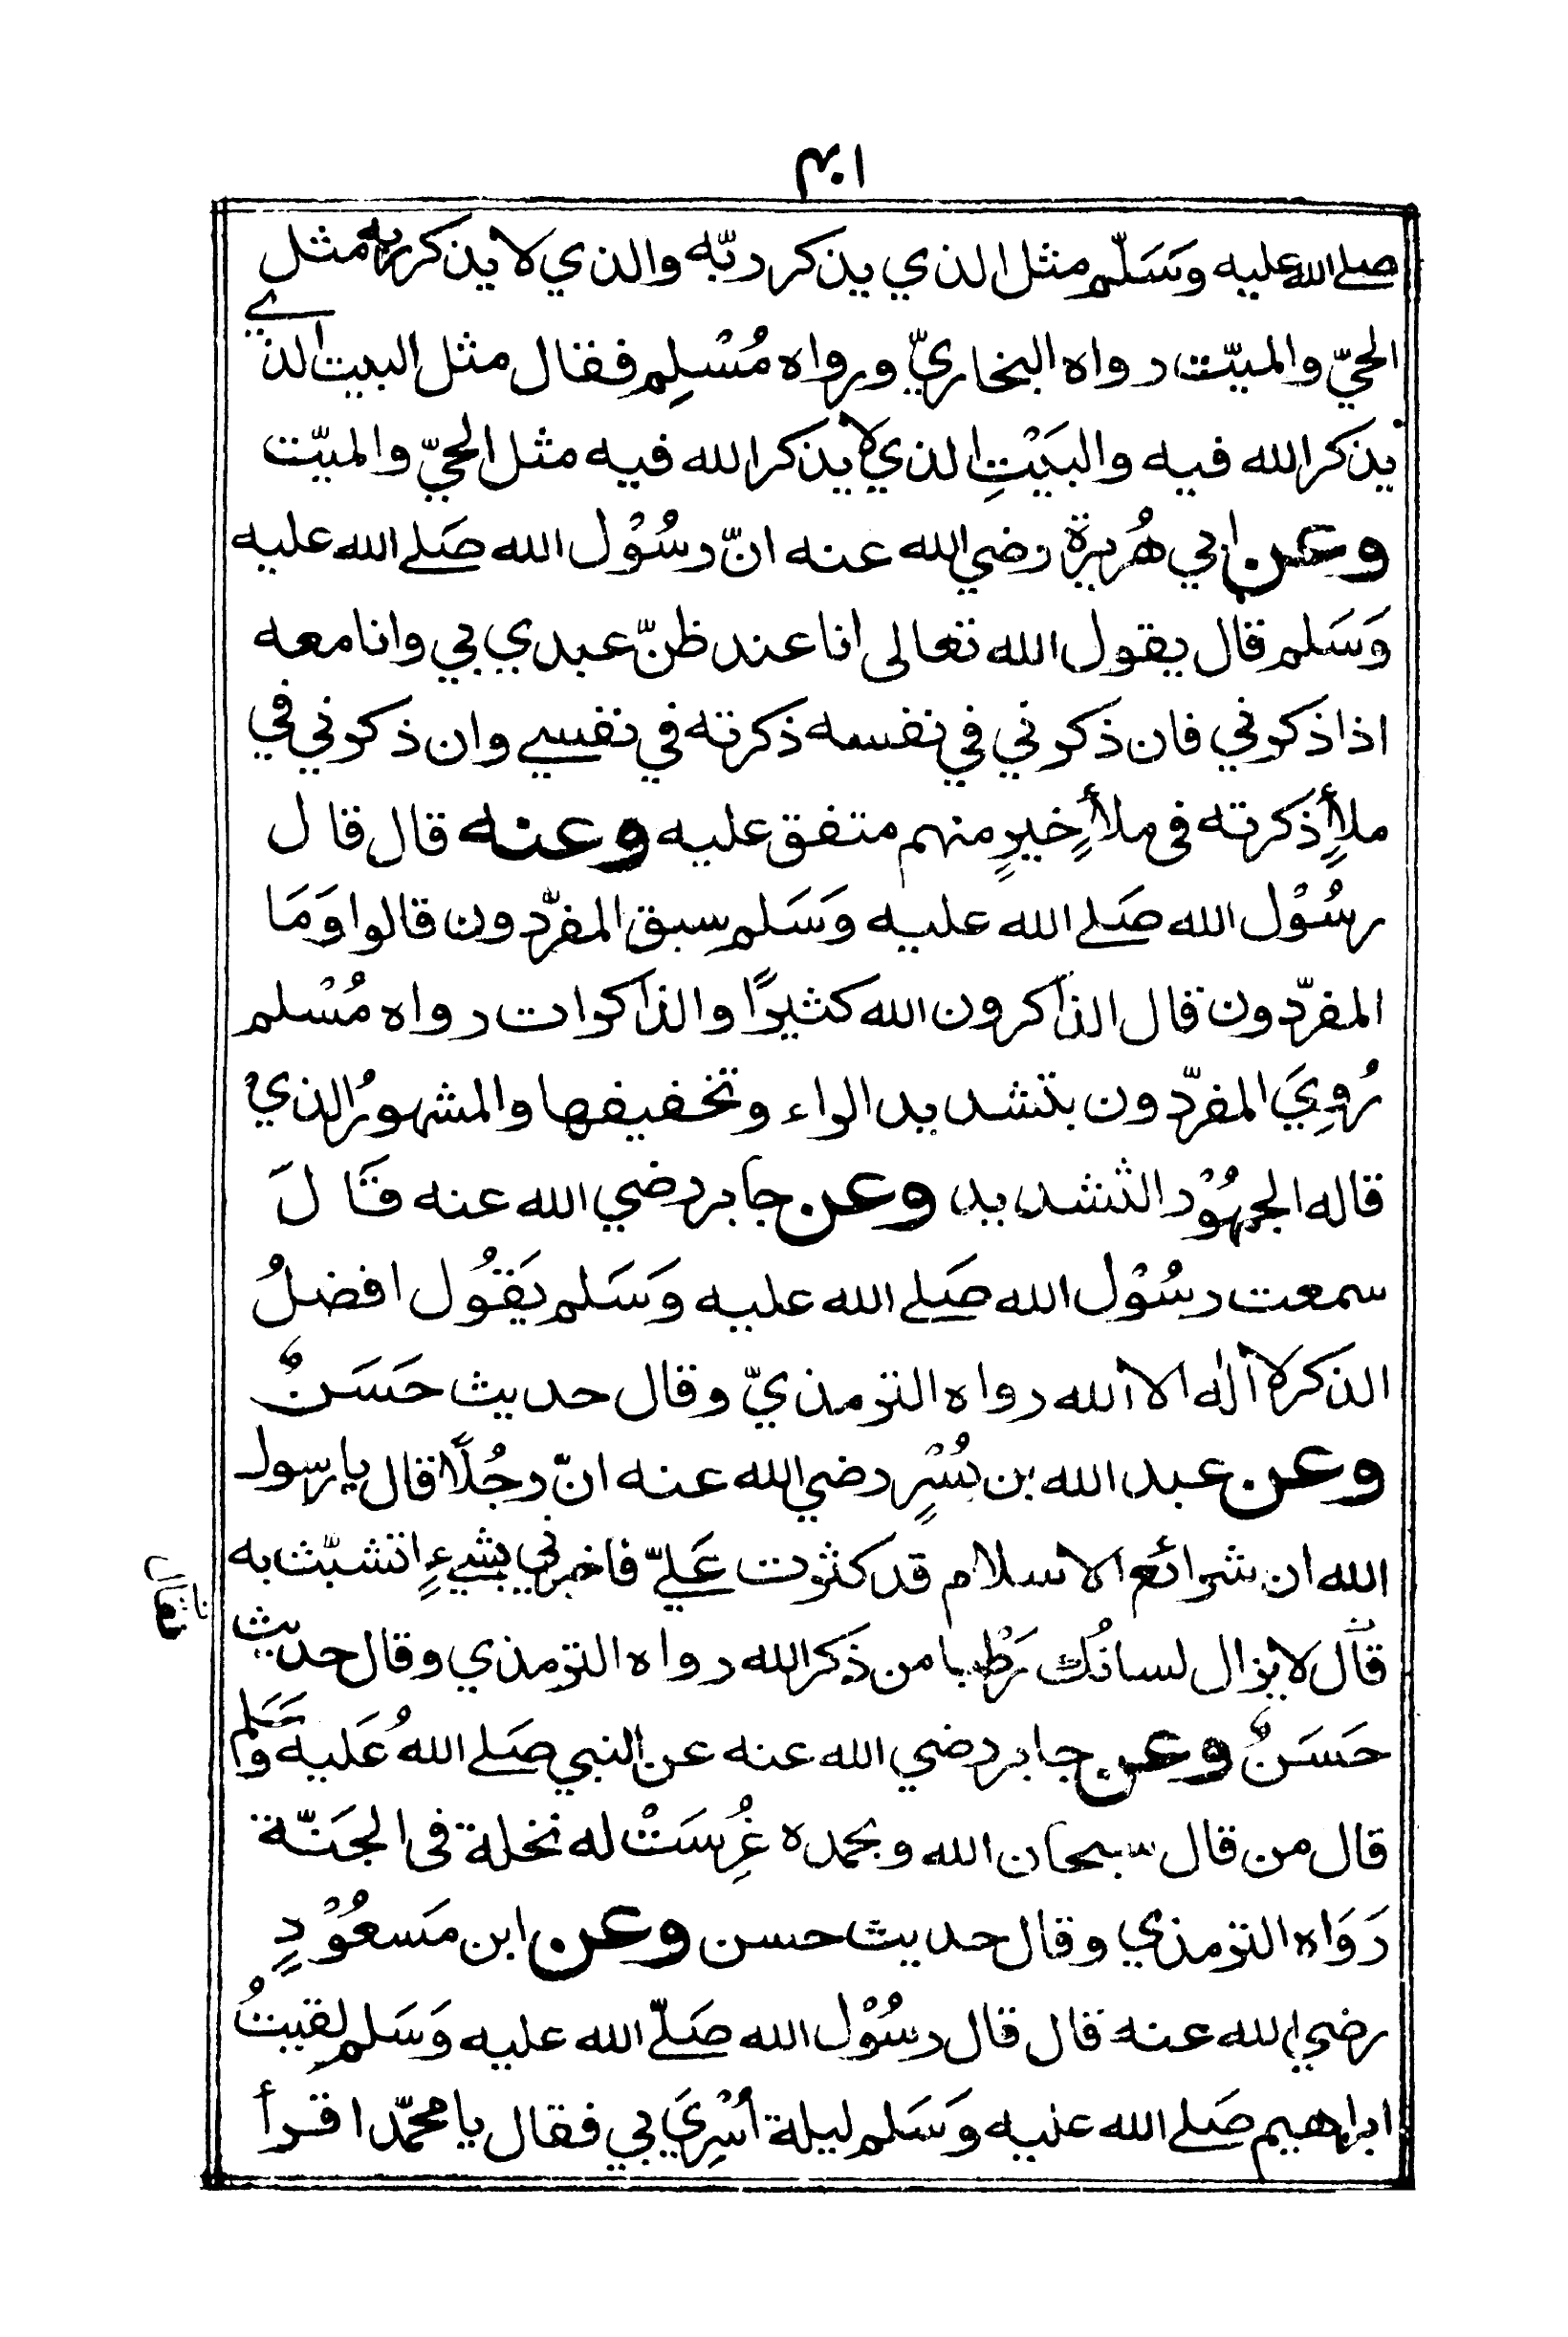 صلے الله عليه وَسَلّم مثل الذي يذكر ربّه والذي لا يذكر ربه مثل
الحيّ والميّت رواه البخاريّ ورواه مُسْلِم فقال مثل البيت الذي
يذكر الله فيه والبَيْتِ الذي لا يذكر الله فيه مثل الحيّ والميّت
وعن ابي هُريرة رضي الله عنه انّ رسُوْل الله صَلے الله عليه
وَسَلم قال يقول الله تعالى انا عند ظنّ عبدي بي وانا معه
اذا ذكرني فان ذكرني في نفسه ذكرته في نفسي وان ذكرني في
ملأٍ ذكرته فى ملأٍ خيرٍ منهم متفق عليه وعنه قال قال
رسُوْل الله صَلے الله عليه وَسَلم سبق المفرّدون قالوا وَمَا
المفرّدون قال الذاكرون الله كثيرًا والذاكرات رواه مُسْلم
رُوِيَ المفرّدون بتشديد الراء وتخفيفها والمشهورُ الذي
قاله الجمهُوْر التشديد وعن جابر رضي الله عنه قَالَ
سمعت رسُوْل الله صَلے الله عليه وَسَلم يَقُول افضلُ
الذكر لا اله الا الله رواه الترمذيّ وقال حديث حَسَنٌ
وعن عبد الله بن بُسْرٍ رضي الله عنه انّ رجُلًا قال يا رسول
الله ان شرائع الاسلام قد كثرت عَلَيّ فاخبرني بشيءٍ اتشبّث به
قال لا يزال لسانُك رَطْبا من ذكر الله رواه الترمذي وقال حديث
حَسَنٌ وعن جابر رضي الله عنه عن النبي صَلے اللهُ عَليه وَسَلم
قال من قال سبحان الله وبحمده غُرِسَتْ له نخلة فى الجَنّة
رَوَاه الترمذي وقال حديث حسن وعن ابن مَسعُوْدٍ
رضي الله عنه قال قال رسُوْل الله صَلّے الله عليه وَسَلم لقيتُ
ابراهيم صَلے الله عليه وَسَلم ليلة اُسْرِيَ بي فقال يا محمّد اقرأ